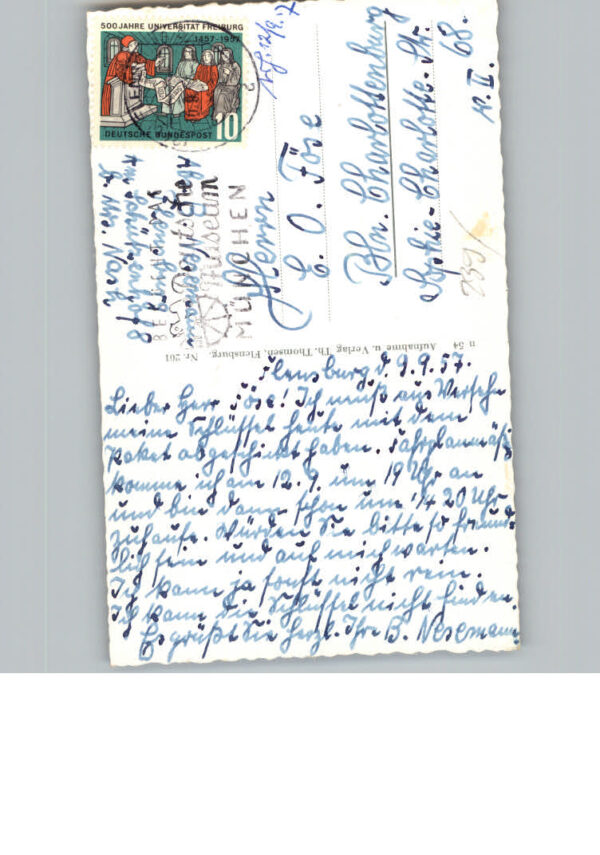 500 JAHRE UNIVERSITÄT FREIBURG
1457-1957
DEUTSCHE BUNDESPOST
10
BESUCHT DAS
Deutsche
Museum
MÜNCHEN
Abs. B. Nesemann
Flensburg
Am Schützenhof 8
b. Wwe.
12/9. 57
Herrn
C. O. Föse
Bln. Charlottenburg
Sophie-Charlotte-Str.
68.
v. II.
239/
n 54 Aufnahme u. Verlag Th. Thomsen, Flensburg. Nr. 261
Flensburg d. 9.9.57.
Lieber Herr Föse! Ich muß aus Versehn
meine Schlüssel heute mit dem
Paket abgeschickt haben. Fahrplanmäßig
komme ich am 12.9. um 19 Uhr an
und bin dann schon um 1/4 20 Uhr
zuhause. Würden Sie bitte so freund-
lich sein und auf mich warten.
Ich kann ja sonst nicht rein.
Ich kann die Schlüssel nicht finden.
Es grüßt Sie herzl. Ihre B. Nesemann.